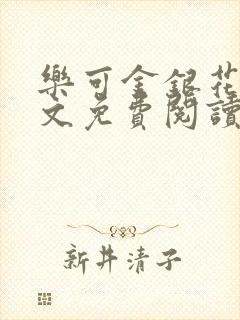 樂可金銀花
文免費閱讀
新井清子